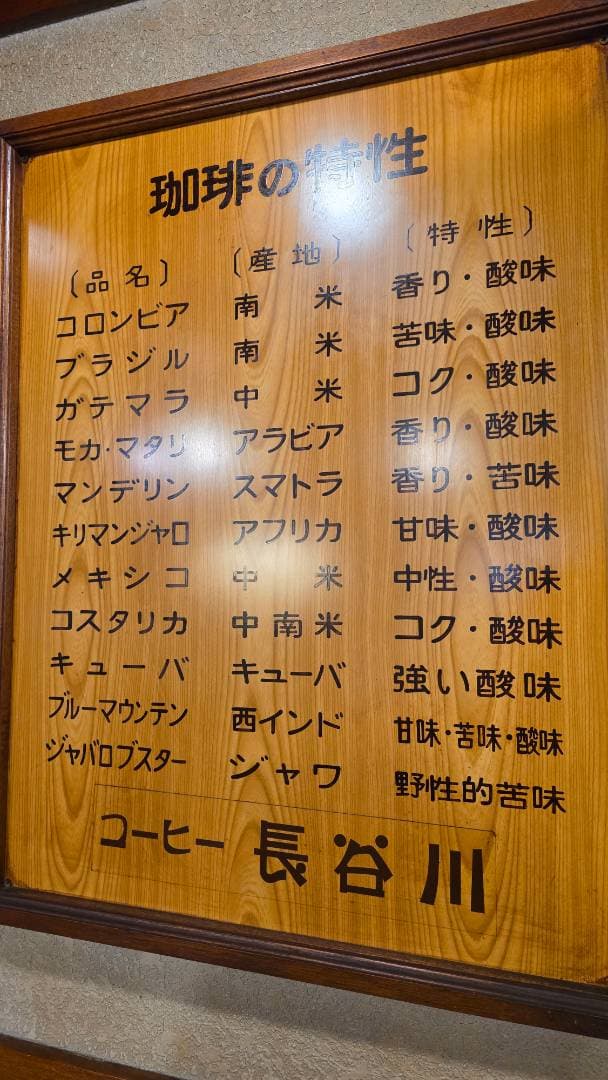 珈琲の特性
〔品名〕 〔産地〕 〔特性〕
コロンビア 南米 香り・酸味
ブラジル 南米 苦味・酸味
ガテマラ 中米 コク・酸味
モカ・マタリ アラビア 香り・酸味
マンデリン スマトラ 香り・苦味
キリマンジャロ アフリカ 甘味・酸味
メキシコ 中米 中性・酸味
コスタリカ 中南米 コク・酸味
キューバ キューバ 強い酸味
ブルーマウンテン 西インド 甘味・苦味・酸味
ジャバロブスター ジャワ 野性的苦味
コーヒー 長谷川